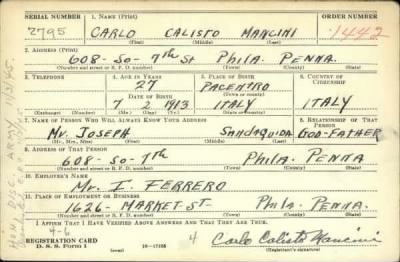 SERIAL NUMBER 1. NAME (Print) ORDER NUMBER
2795 CARLO CALISTO MANCINI 1442
(First) (Middle) (Last)
2. ADDRESS (Print)
608- So- 7th St Phila. Penna.
(Number and street or R. F. D. number) (Town) (County) (State)
3. TELEPHONE 4. AGE IN YEARS 5. PLACE OF BIRTH 6. COUNTRY OF CITIZENSHIP
27 PACENTRO
DATE OF BIRTH (Town or county)
7 2 1913 ITALY ITALY
(Exchange) (No.) (Mo.) (Day) (Yr.) (State or country)
7. NAME OF PERSON WHO WILL ALWAYS KNOW YOUR ADDRESS 8. RELATIONSHIP OF THAT PERSON
Mr. JOSEPH SANDAQUIDA GOD-FATHER
(Mr., Mrs., Miss) (First) (Middle) (Last)
9. ADDRESS OF THAT PERSON
608- So- 7th Phila. Penna
(Number and street or R. F. D. number) (Town) (County) (State)
10. EMPLOYER'S NAME
Mr. I. FERRERO
11. PLACE OF EMPLOYMENT OR BUSINESS
1626- MARKET- ST- Phila- Penna.
(Number and street or R. F. D. number) (Town) (County) (State)
I AFFIRM THAT I HAVE VERIFIED ABOVE ANSWERS AND THAT THEY ARE TRUE.
4-6
REGISTRATION CARD
D. S. S. Form 1 (over) 16-17105 4 Carlo Calisto Mancini
(Registrant's signature)
ARMY 11/31/45.